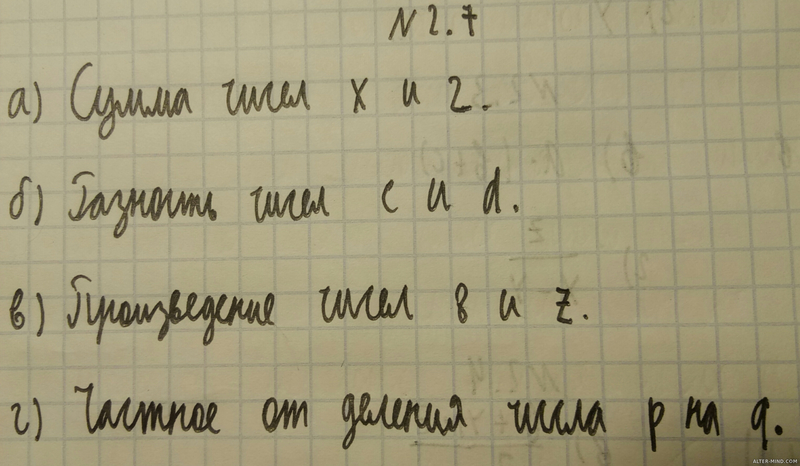 N 2.7
а) Сумма чисел x и 2.
б) Разность чисел c и d.
в) Произведение чисел 8 и z.
г) Частное от деления числа p на q.
ALTER-MIND.COM